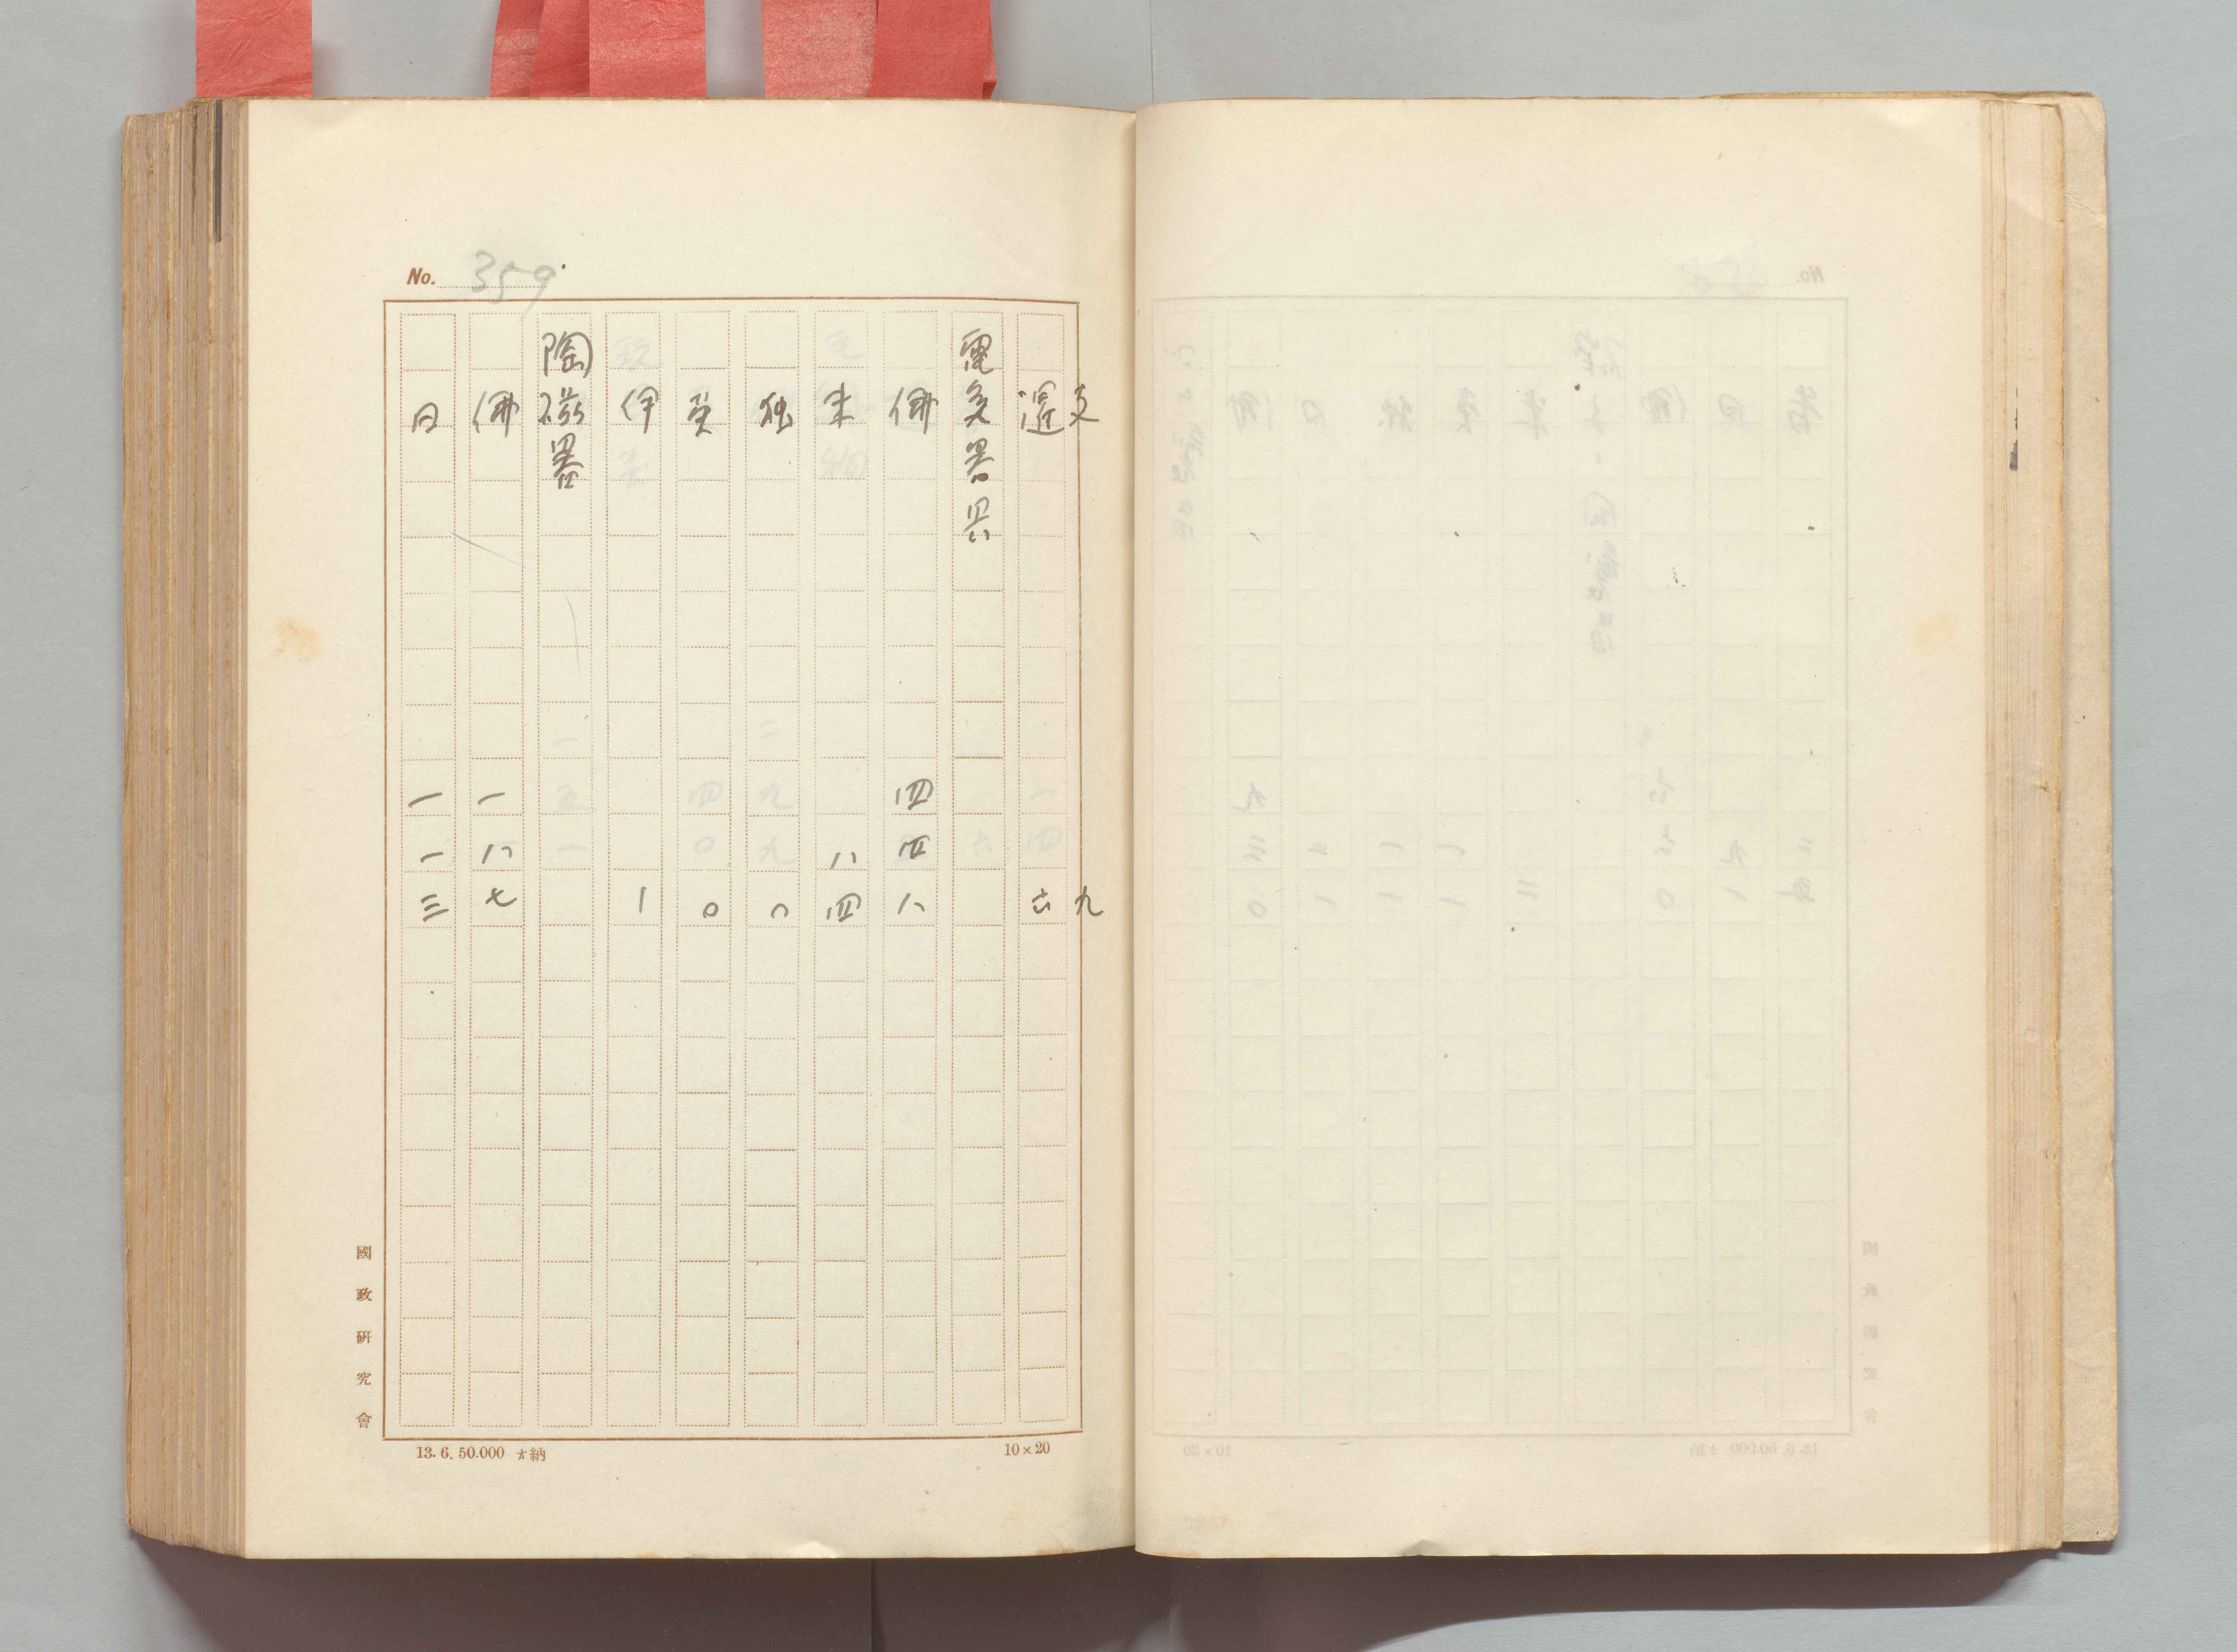 No. 359
支 九
暹 六
電気器具
佛 四四八
米 八四
独 〇
英 〇
伊 一
陶磁器
佛 一八七
日 一一三
國政研究會
13. 6. 50.000 納
10×20